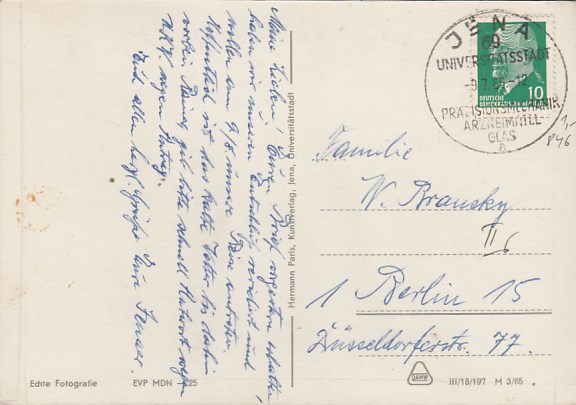 Meine Lieben! Euren Brief gestern erhalten,
haben wir unseren Entschluß revidiert und
wollen am 9/8 unsere Reise antreten.
Hoffentlich ist das kalte Wetter bis dahin
vorbei. Renny gib bitte schnell Antwort wegen
Antrag.
Euch allen herzl. Grüße Eure
Hermann Paris, Kunstverlag, Jena, Universitätsstadt
JENA
69
UNIVERSITÄTSSTADT
-9.7.65-12
PRÄZISIONSMECHANIK
ARZNEIMITTEL
GLAS
a
DEUTSCHE
DEMOKRATISCHE REPUBLIK
10
1,-
846
Familie
W. Bransky
II
1 Berlin 15
Düsseldorferstr. 77.
Echte Fotografie
EVP MDN -,25
DAMW
III/18/197 M 3/65